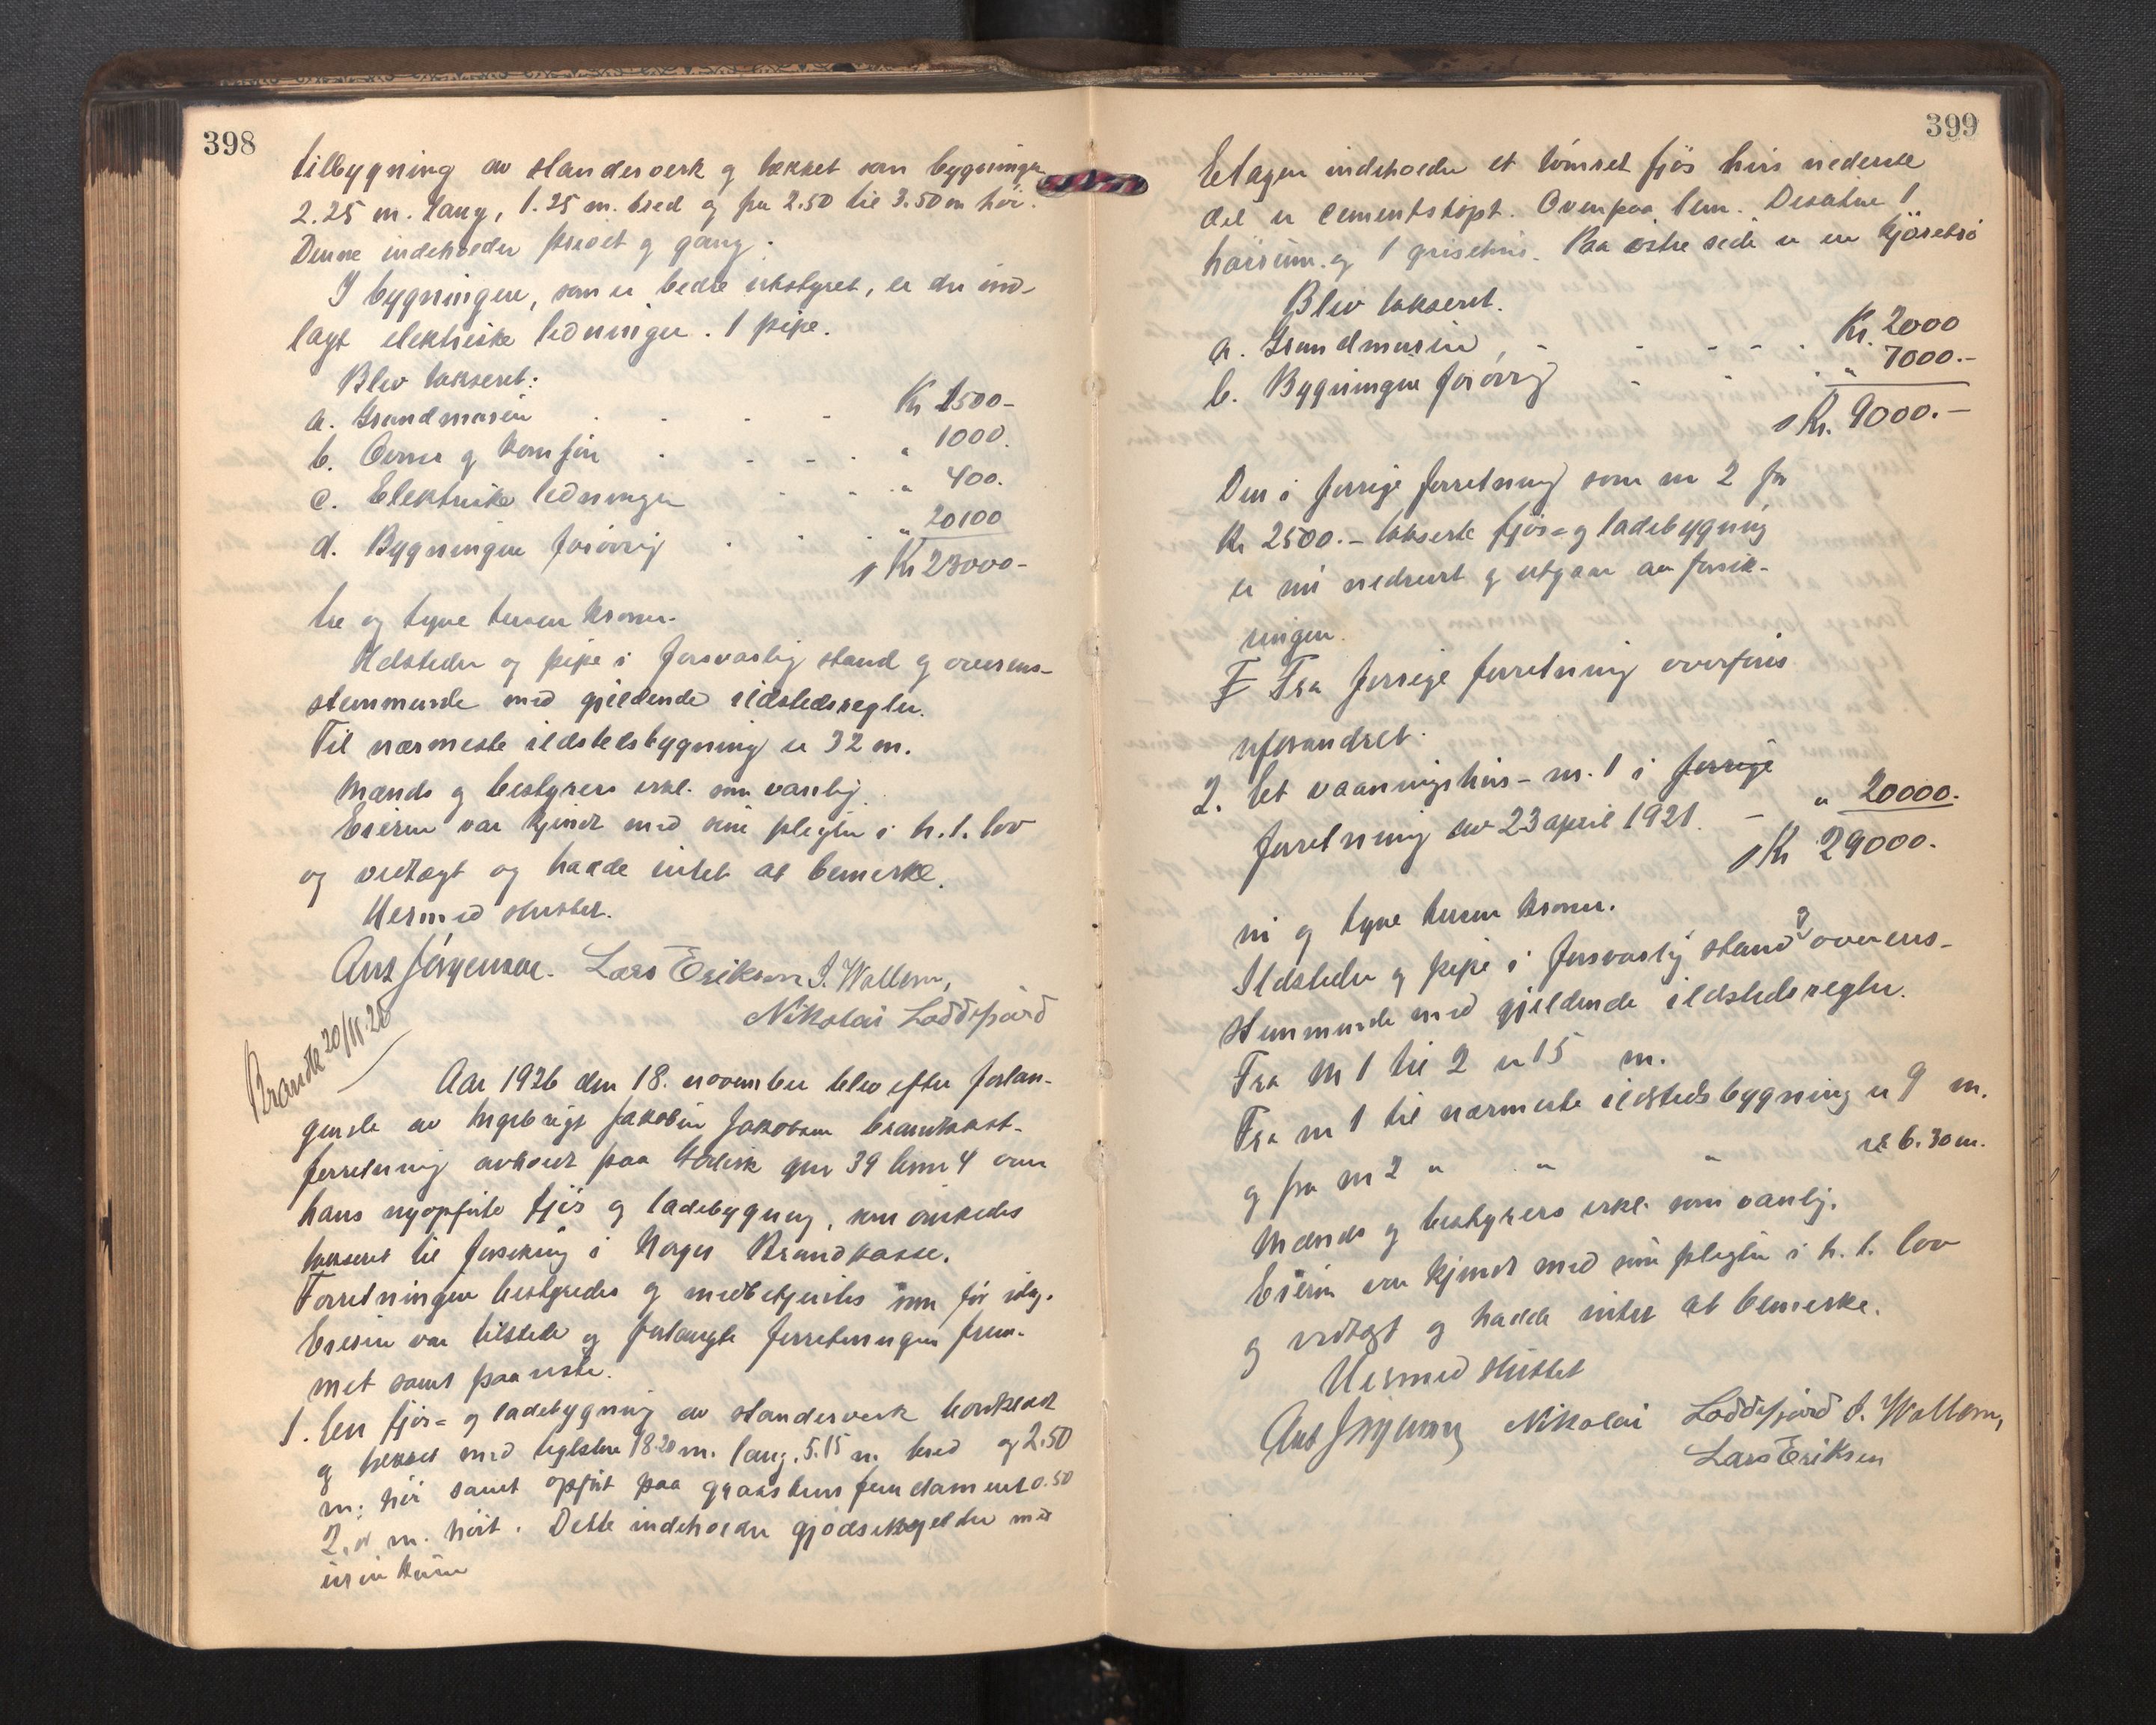 398
tilbygning av standerverk og tækket som bygningen
2.25 m. lang, 1.25 m. bred og fra 2.50 til 3.50 m høi.
Denne indeholder privet og gang.
I bygningen, som er bedre utstyret, er der ind-
lagt elektriske ledninger. 1 pipe.
Blev taksert:
a. Grundmuren Kr 1500-
b. Ovner og komfyr " 1000.
c. Elektriske ledninger " 400.
d. Bygningen forøvrig " 20100
s Kr 23000-
tre og tyve tusen kroner.
Ildsteder og pipe i forsvarlig stand og overens-
stemmende med gjeldende ildstedsregler.
Til nærmeste ildstedsbygning er 32 m.
Mænds og bestyrers erkl. som vanlig.
Eieren var kjendt med sine plegter i h. t. lov
og vedtægt og hadde intet at bemerke.
Hermed sluttet.
Ant Jørgensen. Lars Eriksen I. Wallem,
Nikolai Loddefjord
Brandtk 20/11.26
Aar 1926 den 18. november blev efter forlan-
gende av Ingebrigt Jakobsen brandtakst-
forretning avholdt paa gnr 39 bnr 4 over
hans nyopførte fjøs og ladebygning, som ønskedes
taksert til forsikring i Norges Brandkasse.
Forretningen bestyredes og medbetjentes som før idag.
Eieren var tilstede og forlangte forretningen frem-
met samt paaviste.
1. En fjøs- og ladebygning av standerverk bordklædt
og tækket med teglsten 18.20 m. lang, 5.15 m. bred og 2.50
m. høi samt opført paa graastens fundament 0.50
2. m. høit. Dette indeholder gjødselkjelder med
urinkum
399
Etagen indeholder et tømret fjøs hvis nederste
del er cementstøpt. Ovenpaa lem. Desuten 1
hørum. og 1 grisehus. Paa østre side er en kjørebro
Blev taksert.
a. Grundmuren, Kr. 2000
b. Bygningen forøvrig " 7000.-
s Kr. 9000.-
Den i forrige forretning som nr 2 for
Kr 2500.- takserte fjøs- og ladebygning
er nu nedrevet og utgaar av forsik-
ringen.
F Fra forrige forretning overføres
uforandret.
2. Et vaaningshus- nr. 1 i forrige
forretning av 23 april 1921. - " 20000.-
s Kr 29000.-
ni og tyve tusen kroner.
Ildsteder og pipe i forsvarlig stand og overens-
stemmende med gjeldende ildstedsregler.
Fra nr 1 til 2 er 15 m.
Fra nr 1 til nærmeste ildstedsbygning er 9 m.
og fra nr 2 " " " er 6.30 m.
Mænds og bestyrers erkl. som vanlig.
Eieren var kjendt med sine plegter i h. t. lov
og vedtægt og hadde intet at bemerke.
Hermed sluttet
Ant Jørgensen Nikolai Loddefjord I. Wallem,
Lars Eriksen